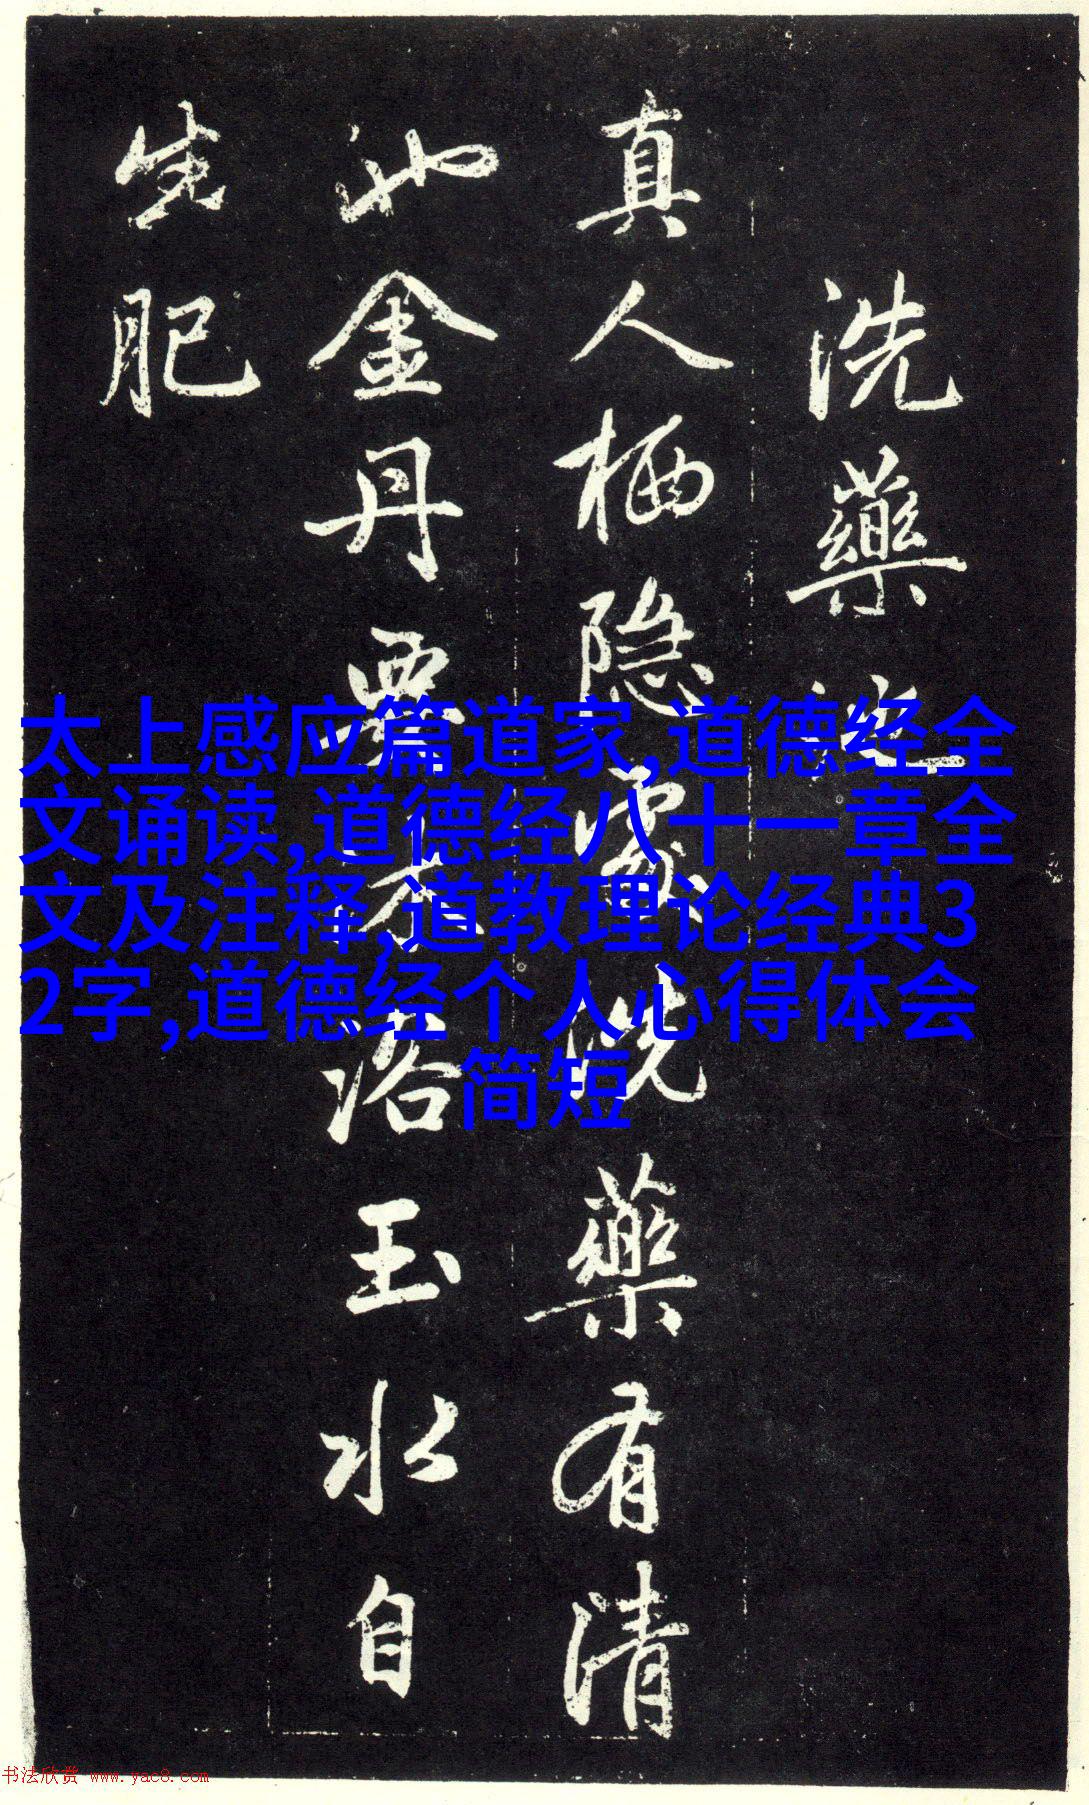 洗藥池
真人栖隐處洗藥有清
池金丹要沐浴玉水自
生肥
太上感应篇道家,道德经全
文诵读,道德经八十一章全
文及注释,道教理论经典3
2字,道德经个人心得体会
简短
书法欣赏 www.yac8.com